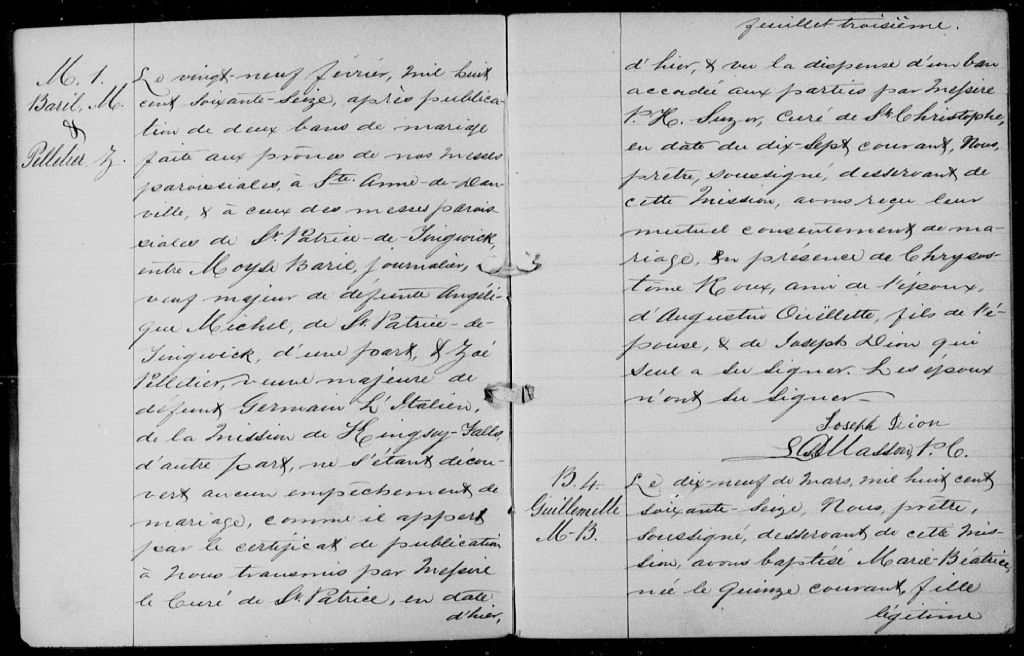 M. 1.
Baril, M.
&
Pelletier Z.
Le vingt-neuf février, mil huit
cent soixante-seize, après publica-
tion de deux bans de mariage
faite aux prônes de nos messes
paroissiales, à Ste Anne-de-Dan-
ville, & à ceux des messes parois-
siales de St. Patrice-de-Tingwick,
entre Moyse Baril, journalier,
veuf majeur de défunte Angéli-
que Michel, de St. Patrice-de-
Tingwick, d'une part, & Zoé
Pelletier, veuve majeure de
défunt Germain L'Italien,
de la mission de Kingsey-Falls,
d'autre part, ne s'étant décou-
vert aucun empêchement de
mariage, comme il appert
par le certificat de publication
à nous transmis par Messire
le Curé de St. Patrice, en date
d'hier,
feuillet troisième.
d'hier, & vu la dispense d'un ban
accordée aux parties par Messire
P. H. Suzor, curé de St. Christophe,
en date du dix-sept courant, Nous,
prêtre, soussigné, desservant de
cette mission, avons reçu leur
mutuel consentement de ma-
riage, en présence de Chrysos-
tôme Roux, ami de l'époux,
d'Augustin Ouëllette, fils de l'é-
pouse, & de Joseph Dion qui
seul a su signer. Les époux
n'ont su signer
Joseph Dion
Masson, P. C.
B. 4.
Guillemette
M-B.
Le dix-neuf de mars, mil huit cent
soixante-seize, Nous, prêtre,
soussigné, desservant de cette mis-
sion, avons baptisé Marie-Béatrice,
née le quinze courant, fille
légitime